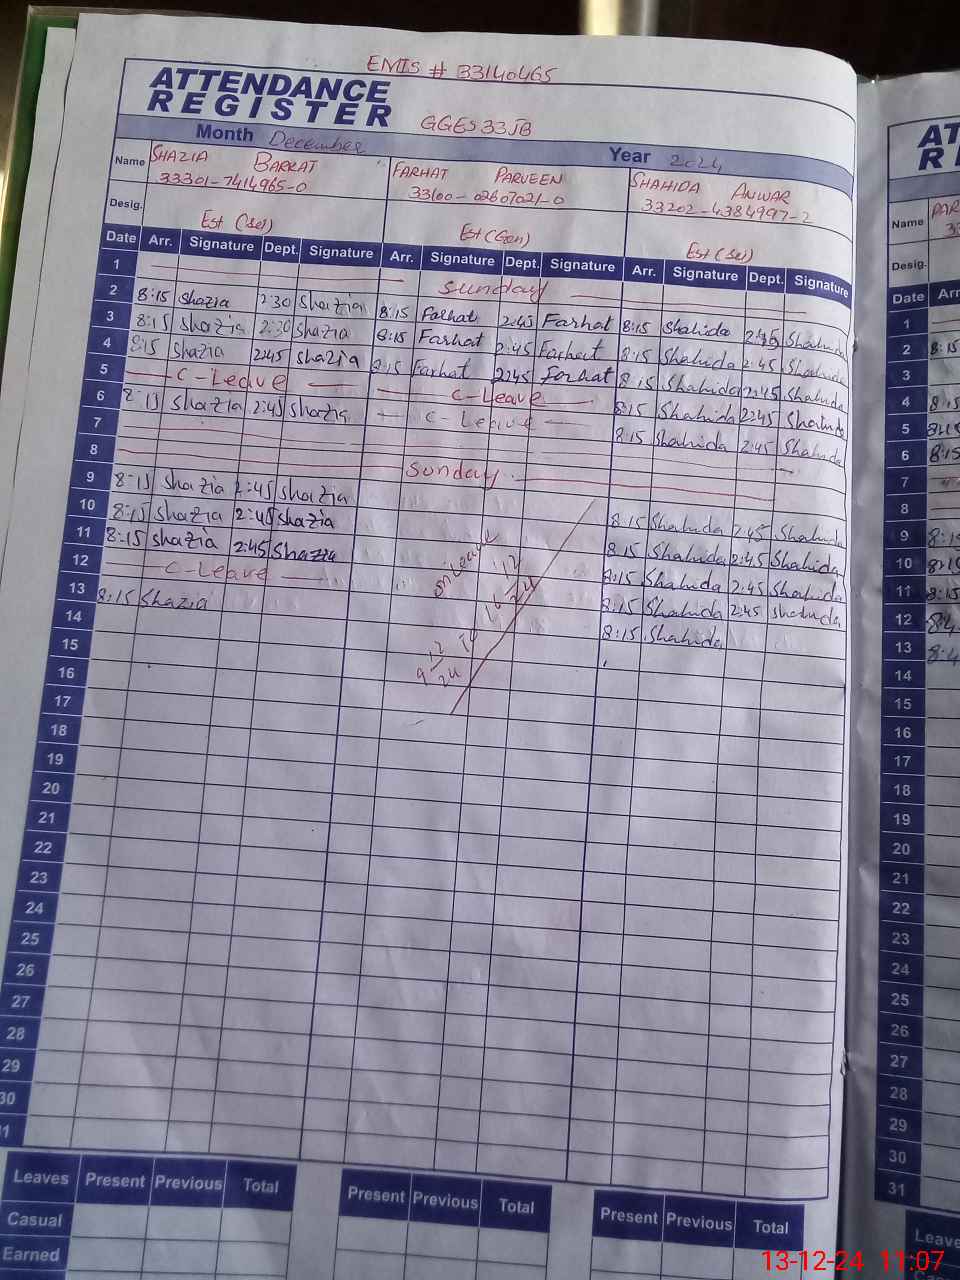 EMIS # 33140465
ATTENDANCE
REGISTER
GGES 33JB
Month December Year 2024
Name SHAZIA BARKAT FARHAT PARVEEN SHAHIDA ANWAR
33301-7414965-0 33100-02607021-0 33202-4384997-2
Desig. Est (Sci) Est (Gen) Est (Sci)
Date Arr. Signature Dept. Signature Arr. Signature Dept. Signature Arr. Signature Dept. Signature
1 Sunday
2 8:15 Shazia 2:30 Shazia 8:15 Farhat 2:45 Farhat 8:15 Shahida 2:45 Shahida
3 8:15 Shazia 2:30 Shazia 8:15 Farhat 2:45 Farhat 8:15 Shahida 2:45 Shahida
4 8:15 Shazia 2:45 Shazia 8:15 Farhat 2:45 Farhat 8:15 Shahida 2:45 Shahida
5 C-Leave C-Leave 8:15 Shahida 2:45 Shahida
6 8:15 Shazia 2:45 Shazia C-Leave 8:15 Shahida 2:45 Shahida
7
8 Sunday
9 8:15 Shazia 2:45 Shazia 8:15 Shahida 2:45 Shahida
10 8:15 Shazia 2:45 Shazia 8:15 Shahida 2:45 Shahida
11 8:15 Shazia 2:45 Shazia on Leave 8:15 Shahida 2:45 Shahida
12 C-Leave 8:15 Shahida 2:45 Shahida
13 8:15 Shazia 8:15 Shahida
9 12 24 To 16 12 24
14
15
16
17
18
19
20
21
22
23
24
25
26
27
28
29
30
Leaves Present Previous Total Present Previous Total Present Previous Total
Casual
Earned
Name
Desig.
Date
1
2 8:15
3
4 8:15
5
6 8:15
7
8
9
10 8:15
11 8:15
12
13
14
15
16
17
18
19
20
21
22
23
24
25
26
27
28
29
30
31
13-12-24 11:07